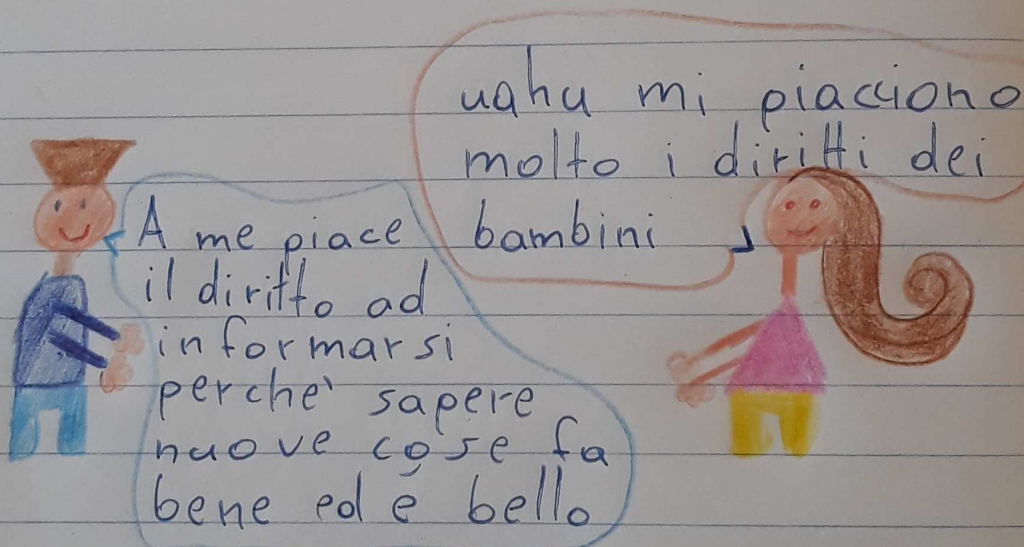 uahu mi piacciono
molto i diritti dei
bambini
A me piace
il diritto ad
informarsi
perche' sapere
nuove cose fa
bene ed è bello